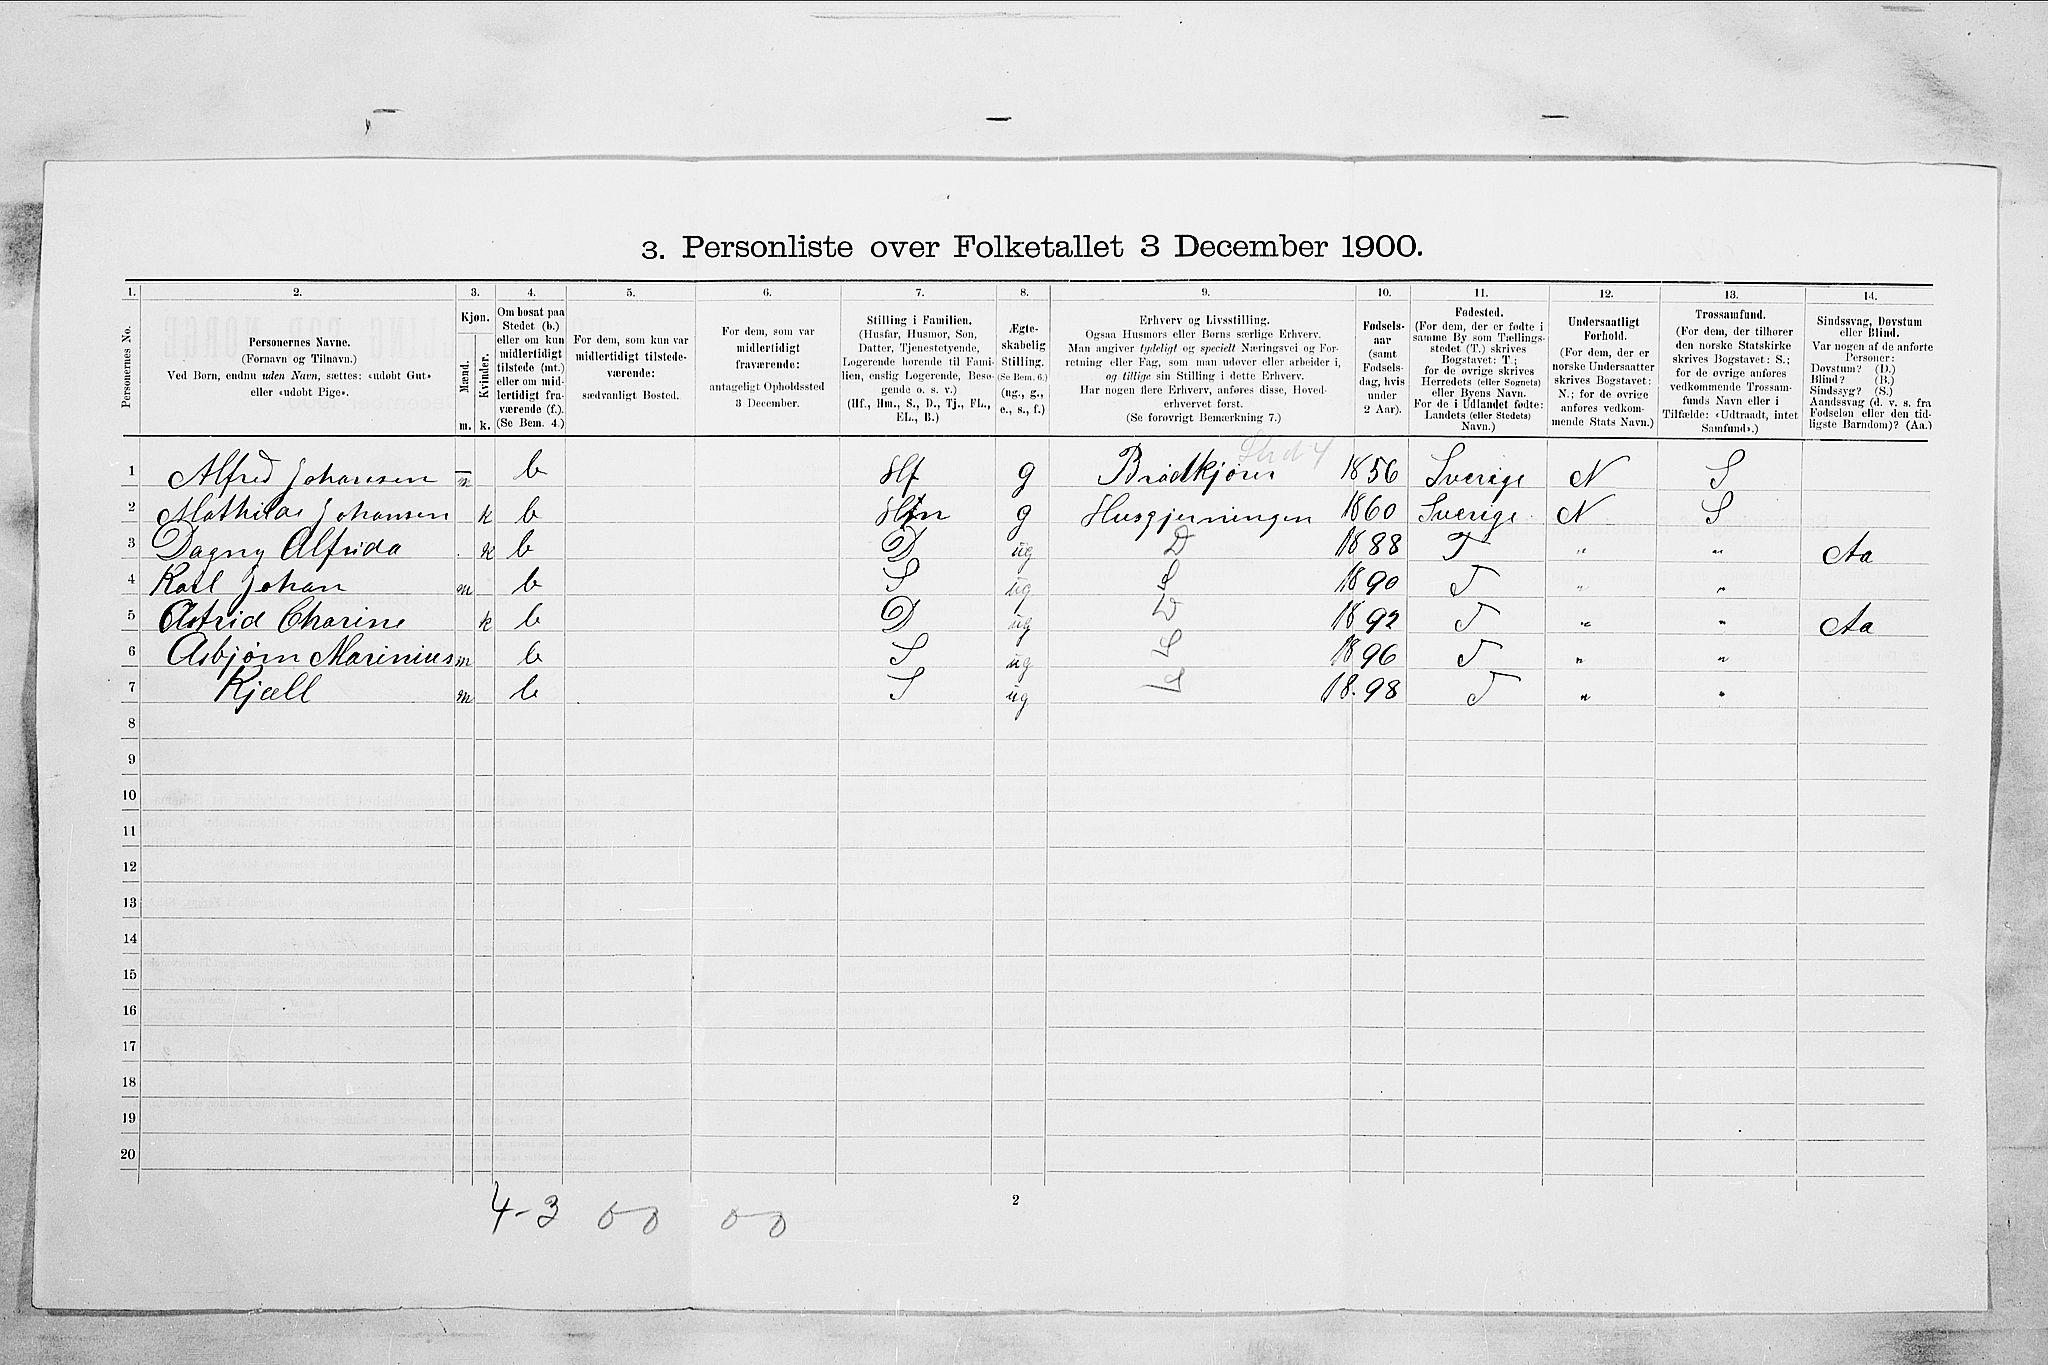 3. Personliste over Folketallet 3 December 1900.
1. 2. 3. 4. 5. 6. 7. 8. 9. 10. 11. 12. 13. 14.
Personernes No.
Personernes Navne.
(Fornavn og Tilnavn.)
Ved Børn, endnu uden Navn, sættes: «udøbt Gut»
eller «udøbt Pige».
Kjøn.
Mænd.
Kvinder.
m. k.
Om bosat paa
Stedet (b.)
eller om kun
midlertidigt
tilstede (mt.)
eller om mid-
lertidigt fra-
værende (f.).
(Se Bem. 4.)
For dem, som kun var
midlertidigt tilstede-
værende:
sædvanligt Bosted.
For dem, som var
midlertidigt
fraværende:
antageligt Opholdssted
3 December.
Stilling i Familien.
(Husfar, Husmor, Søn,
Datter, Tjenestetyende,
Logerende hørende til Fami-
lien, enslig Logerende, Besø-
gende o. s. v.)
(Hf., Hm., S., D., Tj., FL.,
EL., B.)
Ægte-
skabelig
Stilling.
(Se Bem. 6.)
(ug., g.,
e., s., f.)
Erhverv og Livsstilling.
Ogsaa Husmors eller Børns særlige Erhverv.
Man angiver tydeligt og specielt Næringsvei og For-
retning eller Fag, som man udøver eller arbeider i,
og tillige sin Stilling i dette Erhverv.
Har nogen flere Erhverv, anføres disse, Hoved-
erhvervet først.
(Se forøvrigt Bemærkning 7.)
Fødsels-
aar
(samt
Fødsels-
dag, hvis
under
2 Aar).
Fødested.
(For dem, der er fødte i
samme By som Tællings-
stedet (T.) skrives
Bogstavet: T.;
for de øvrige skrives
Herredets (eller Sognets)
eller Byens Navn.
For de i Udlandet fødte:
Landets (eller Stedets)
Navn.)
Undersaatligt
Forhold.
(For dem, der er
norske Undersaatter
skrives Bogstavet:
N.; for de øvrige
anføres vedkom-
mende Stats Navn.)
Trossamfund.
(For dem, der tilhører
den norske Statskirke
skrives Bogstavet: S.;
for de øvrige anføres
vedkommende Trossam-
funds Navn eller i
Tilfælde: «Udtraadt, intet
Samfund».)
Sindssvag, Døvstum
eller Blind.
Var nogen af de anførte
Personer:
Døvstum? (D.)
Blind? (B.)
Sindssyg? (S.)
Aandssvag (d. v. s. fra
Fødselen eller den tid-
ligste Barndom)? (Aa.)
1 Alfred Johansen m b Hf g Brødkjører 1856 Sverige N S
2 Mathilde Johansen k b Hm g Husgjerningen 1860 Sverige. N S
3 Dagny Alfrida k b D ug D 1888 T " " Aa
4 Karl Johan m b S ug S 1890 T " "
5 Astrid Charine k b D ug D 1892 T " " Aa
6 Asbjørn Marinius m b S ug S 1896 T " "
7 Kjell m b S ug S 18.98 T " "
8
9
10
11
12
13
14
15
16
17
18
19
20
4-3 0 0 0 0
2